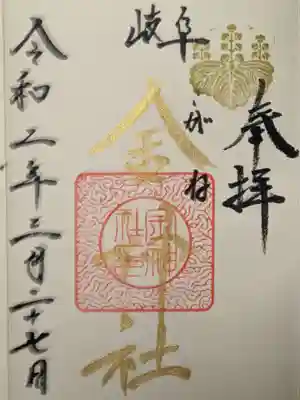 奉拝
岐阜
金神社
金神社印
令和二年三月二十七日